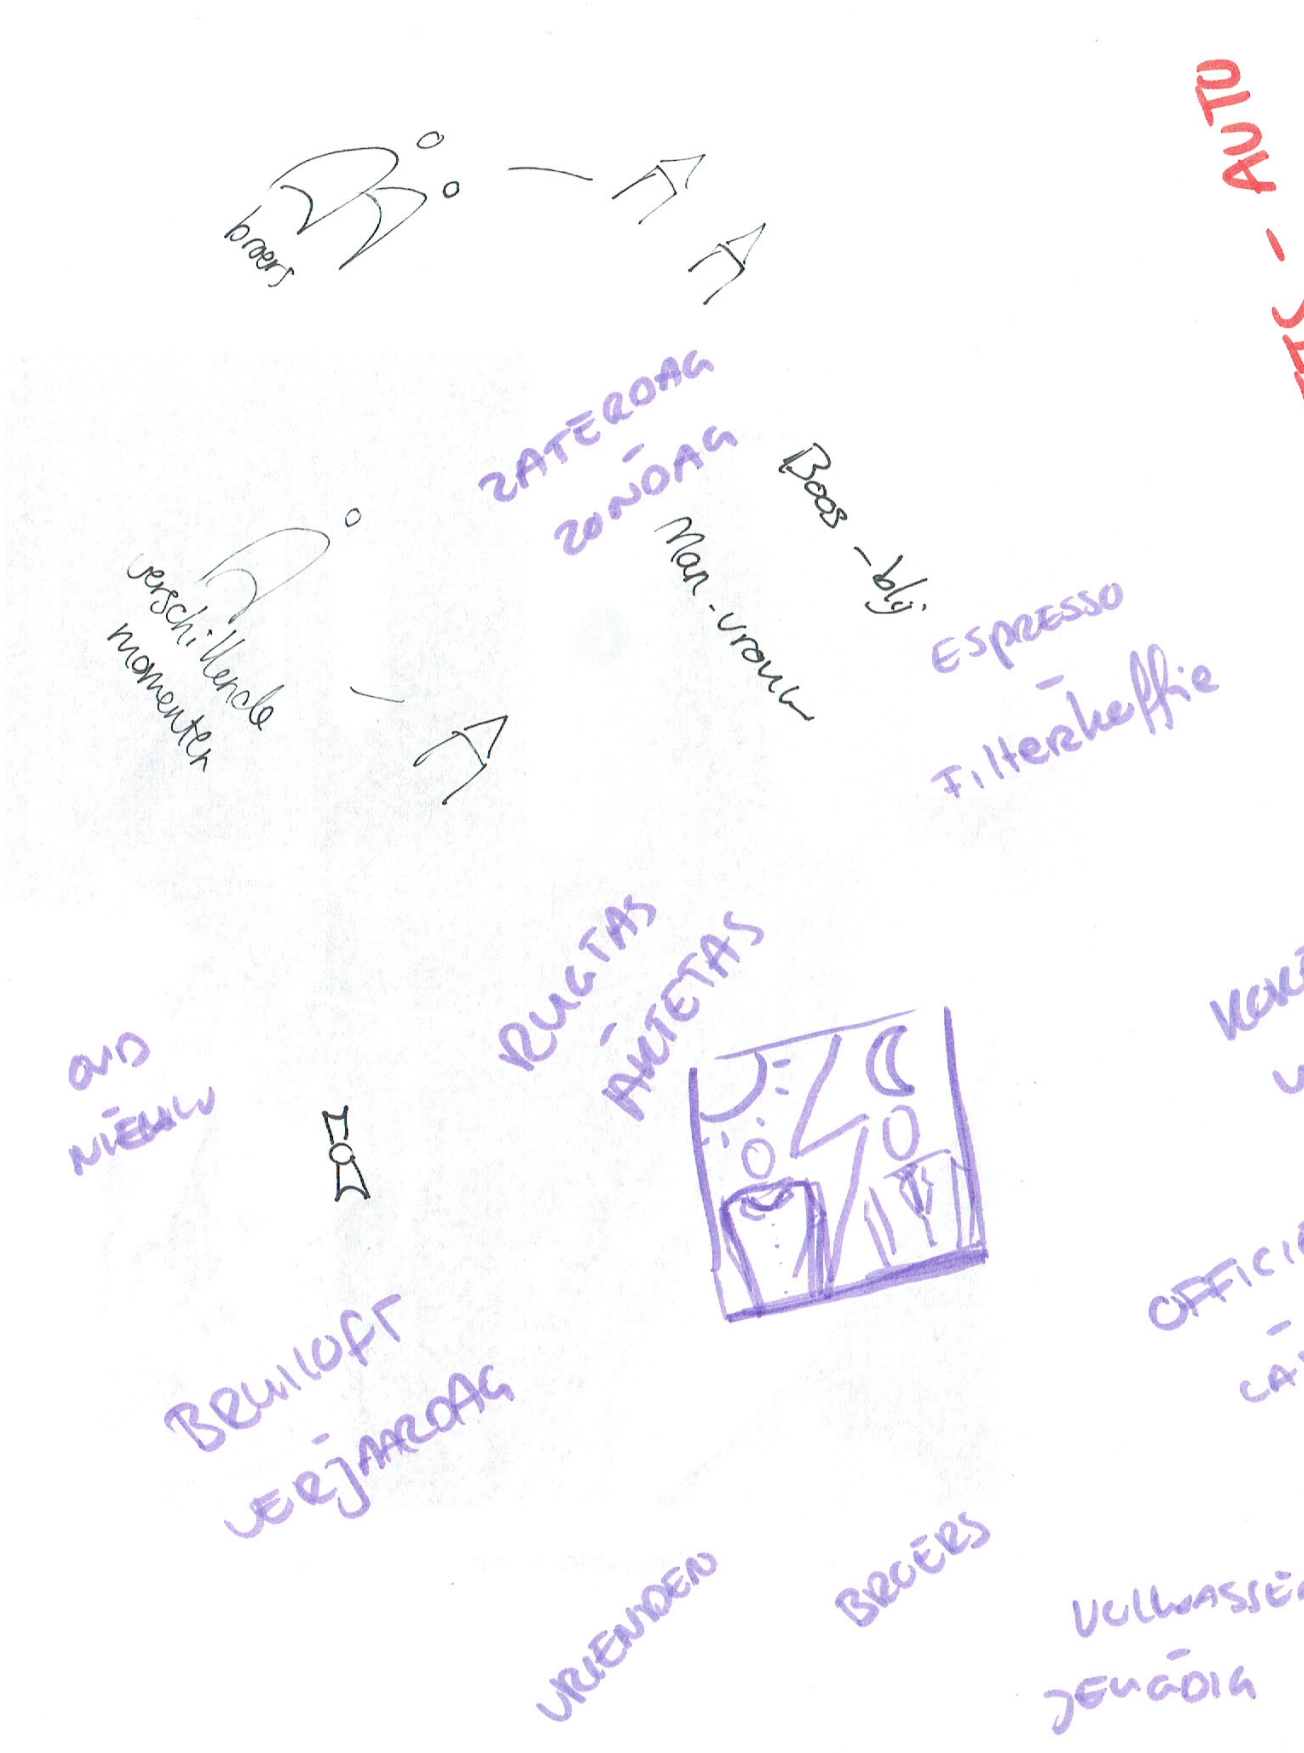 AUTO
-
broers
ZATERDAG
-
ZONDAG
Boos - blij
Man - vrouw
verschillende
momenten
ESPRESSO
-
Filterkoffie
RUGTAS
-
AKTETAS
OUD
-
NIEUW
BRUILOFT
-
VERJAARDAG
VRIENDEN
BROERS
VOLWASSE
-
JEUGDIG
OFFICI
-
CA